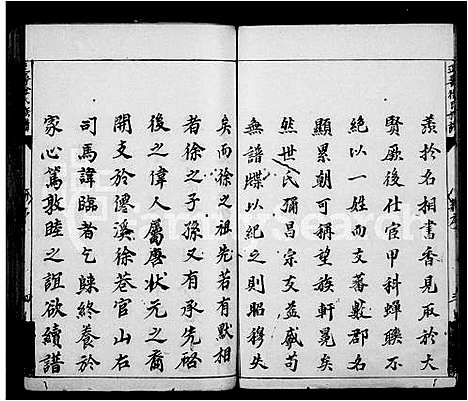 羨於名相書香見取於大
賢厥後仕宦甲科蟬聯不
絕以一姓而支蕃數郡名
顯累朝可稱望族軒冕矣
然世氏彌昌宗支益盛苟
無譜牒以紀之則昭穆失
矣而徐之祖先若有默相
者徐之子孫又有承先啓
後之偉人屬唐狀元之裔
開支於德溪徐巷官山右
司馬諱臨者乞歸終養於
家心篤敦睦之誼欲續譜